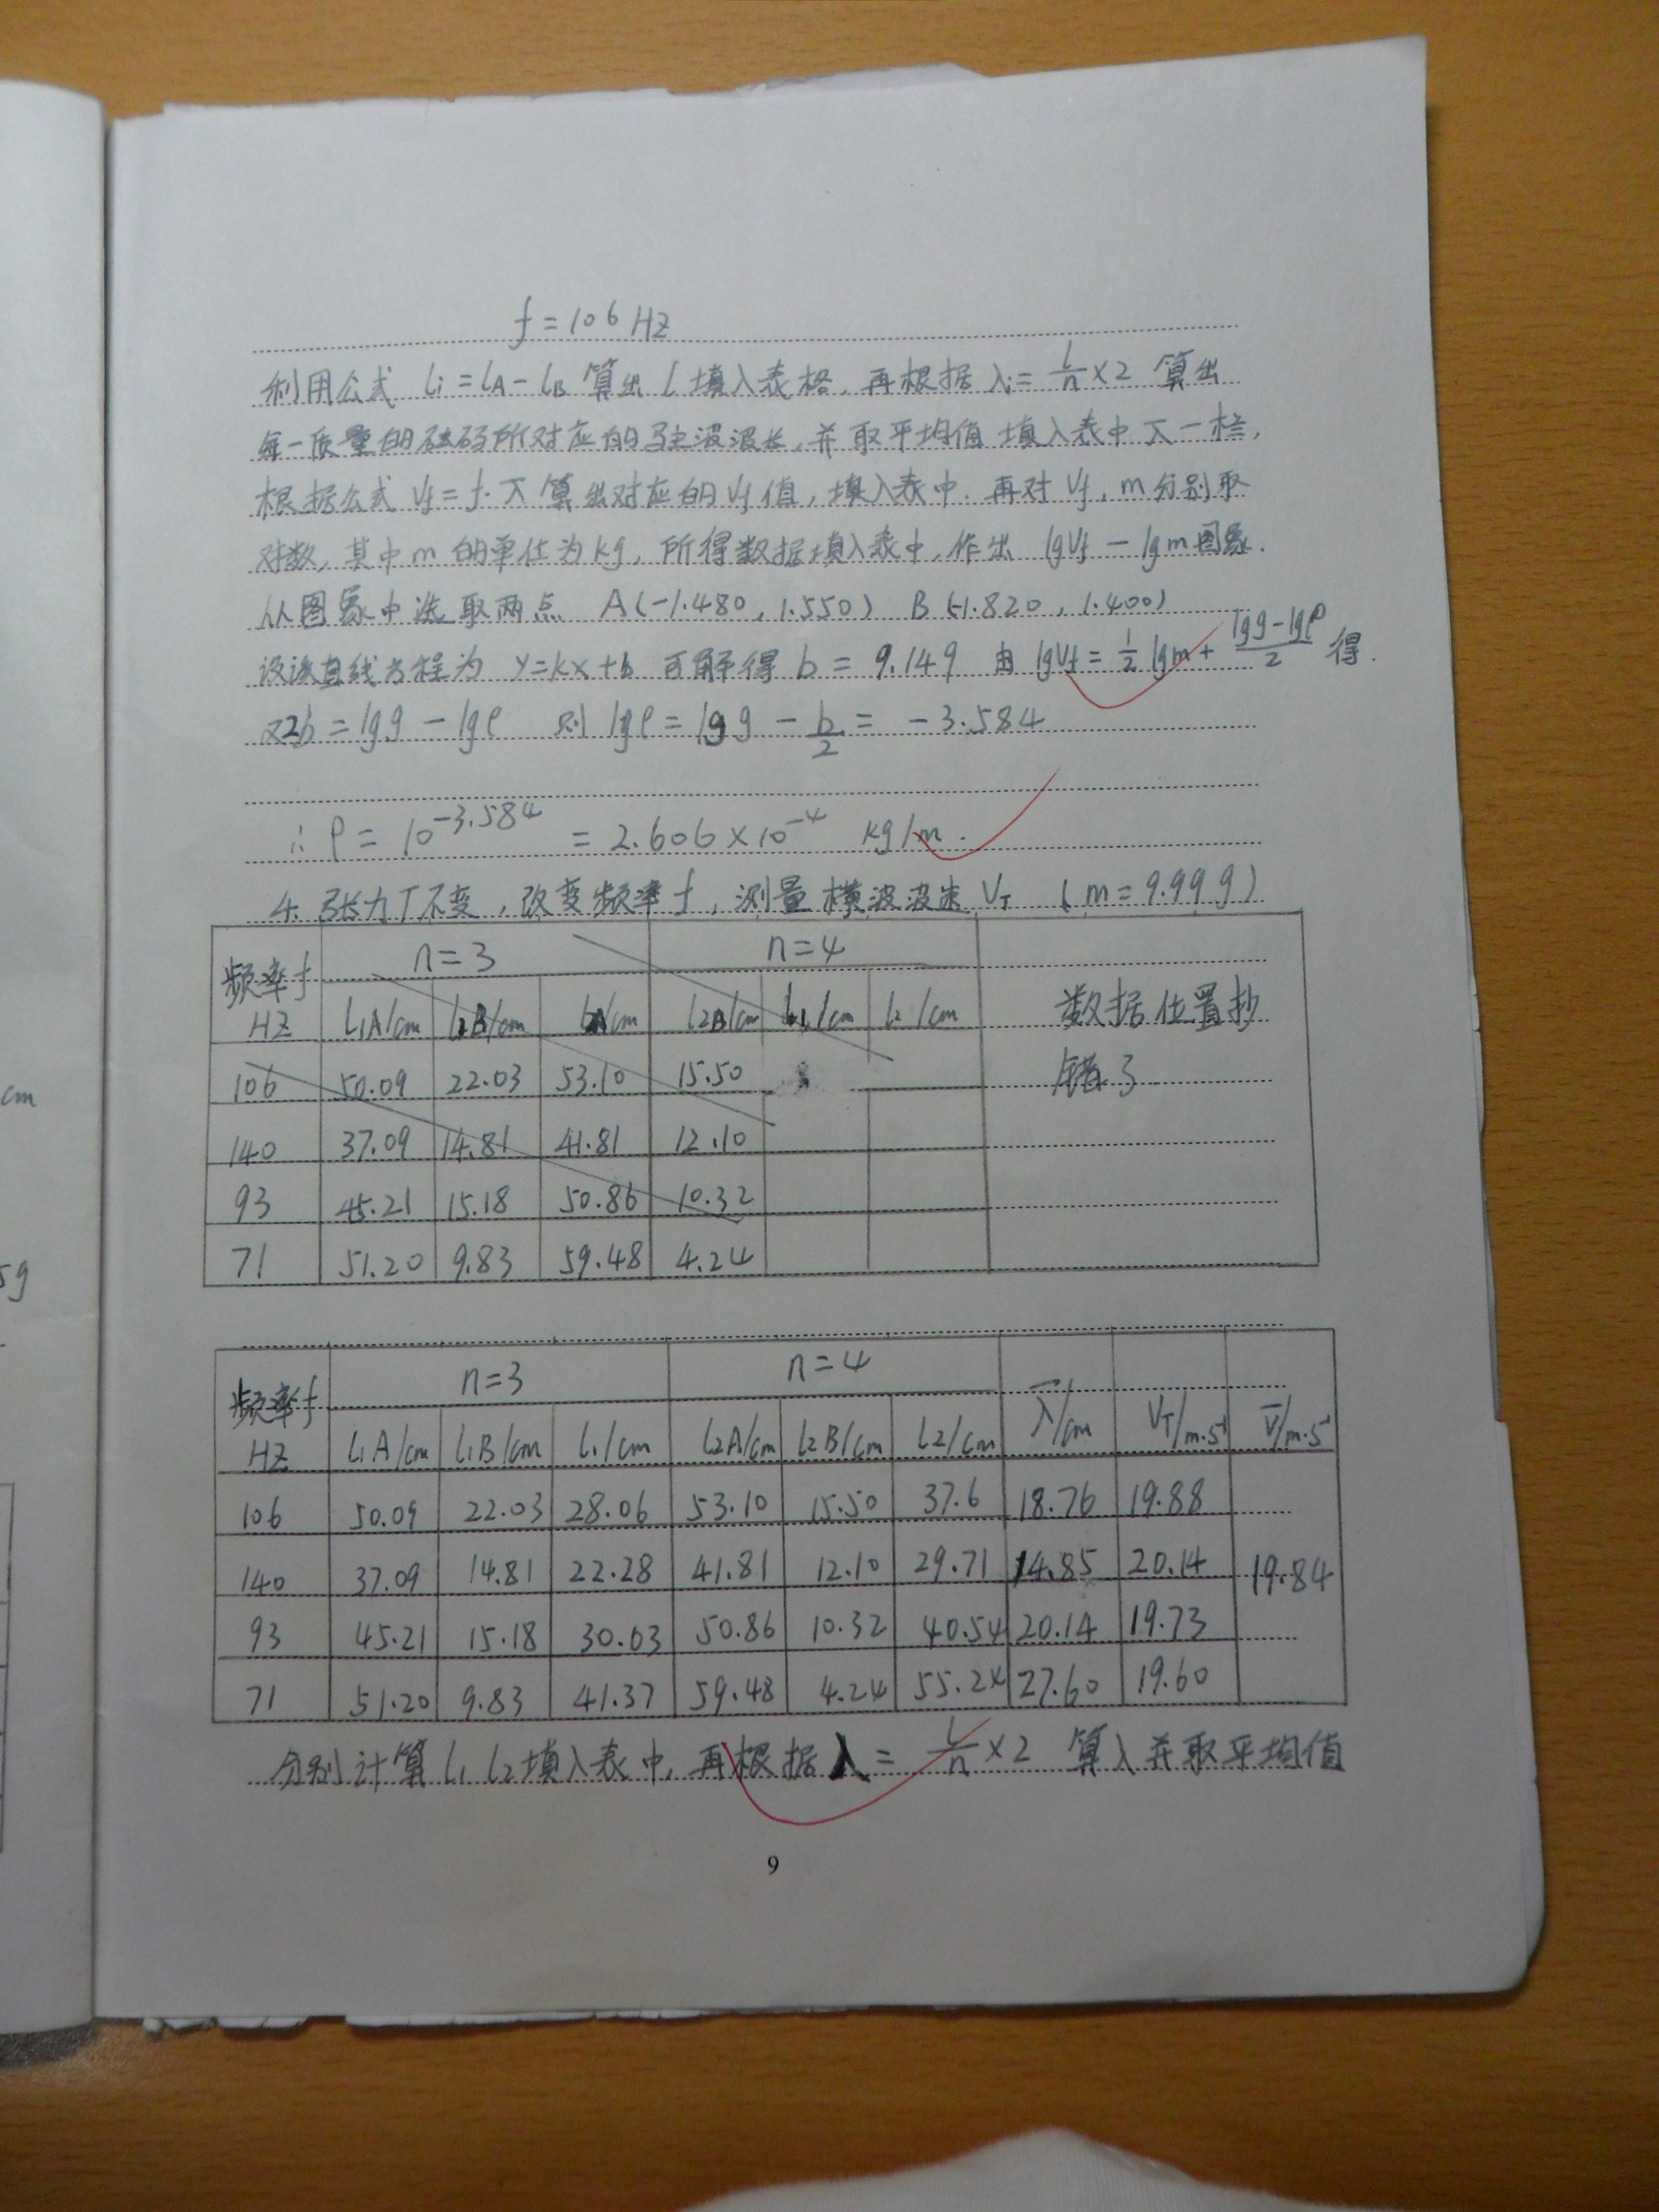 f=106 HZ
利用公式 Li=LA-LB 算出 L 填入表格, 再根据 λi=L/n×2 算出
每一质量的砝码所对应的驻波波长, 并取平均值 填入表中 λ̄ 一栏,
根据公式 Vf=f·λ̄ 算出对应的 Vf 值, 填入表中. 再对 Vf, m 分别取
对数, 其中 m 的单位为 kg, 所得数据填入表中, 作出 lgVf-lgm图象.
从图象中选取两点 A(-1.480, 1.550) B(-1.820, 1.400)
设该直线方程为 y=kx+b 可解得 b=9.149 由 lgVf=1/2 lgm+(lgg-lgρ)/2 得.
又2b=lgg-lgρ 则 lgρ=lgg-b/2=-3.584
∴ρ=10^-3.584 =2.606×10^-4 kg/m.
4. 张力T不变, 改变频率f, 测量横波波速 VT (m=9.99g)
频率f HZ n=3 n=4
L1A/cm L2B/cm L2B/cm L2/cm
数据位置抄
错了
106 50.09 22.03 53.10 15.50
140 37.09 14.81 41.81 12.10
93 45.21 15.18 50.86 10.32
71 51.20 9.83 59.48 4.24
频率f HZ n=3 n=4
L1A/cm L1B/cm L1/cm L2A/cm L2B/cm L2/cm λ̄/cm VT/m·s⁻¹ V̄/m·s⁻¹
106 50.09 22.03 28.06 53.10 15.50 37.6 18.76 19.88
140 37.09 14.81 22.28 41.81 12.10 29.71 14.85 20.14 19.84
93 45.21 15.18 30.03 50.86 10.32 40.54 20.14 19.73
71 51.20 9.83 41.37 59.48 4.24 55.24 27.60 19.60
分别计算 L1 L2填入表中, 再根据λ=L/n×2 算入并取平均值
9
cm
5g